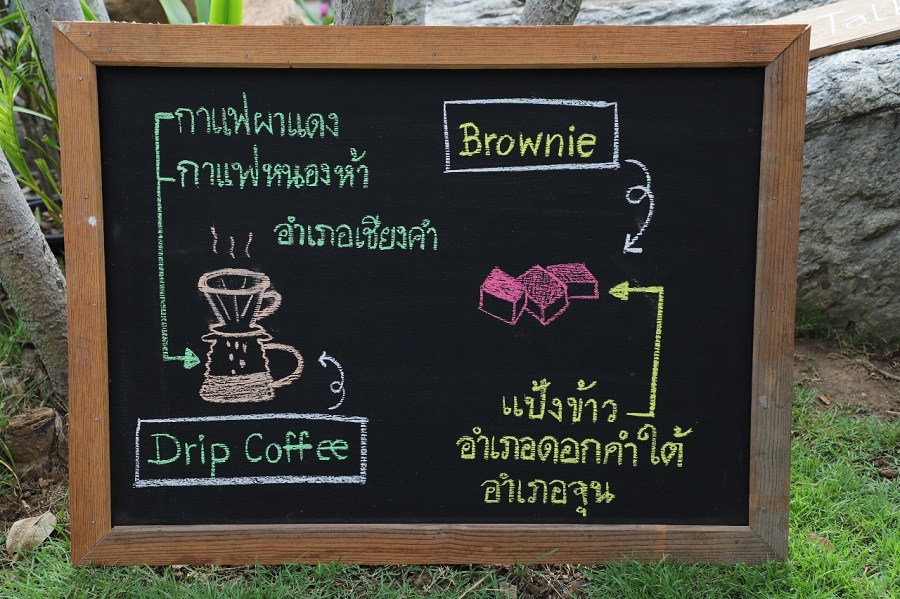 กาแฟผาแดง
กาแฟหนองห้า
อำเภอเชียงคำ
Drip Coffee
Brownie
แป้งข้าว
อำเภอดอกคำใต้
อำเภอจุน